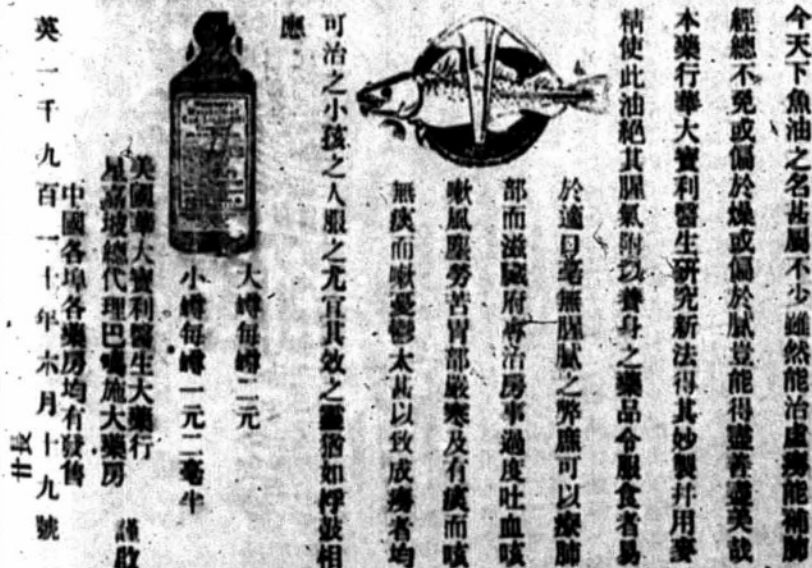 今天下魚油之名甚屬不少雖然能治虛癆能補肺
經總不免或偏於燥或偏於膩豈能得盡善盡美哉
本藥行華大寶利醫生研究新法得其妙製幷用麥
精使此油絕其腥氣附以養身之藥品令服食者易
於適口毫無腥膩之弊應可以療肺
部而滋臟府專治房事過度吐血咳
嗽風塵勞苦冒部嚴寒及有痰而咳
無痰而嗽憂鬱太甚以致成癆者均
可治之小孩之人服之尤宜其效之靈猶如桴鼓相
應
大罇每罇二元
小罇每罇一元二毫半
美國華大寶利醫生大藥行
星嘉坡總代理巴施大藥房
中國各埠各藥房均有發售
謹啟
英一千九百一十年六月十九號